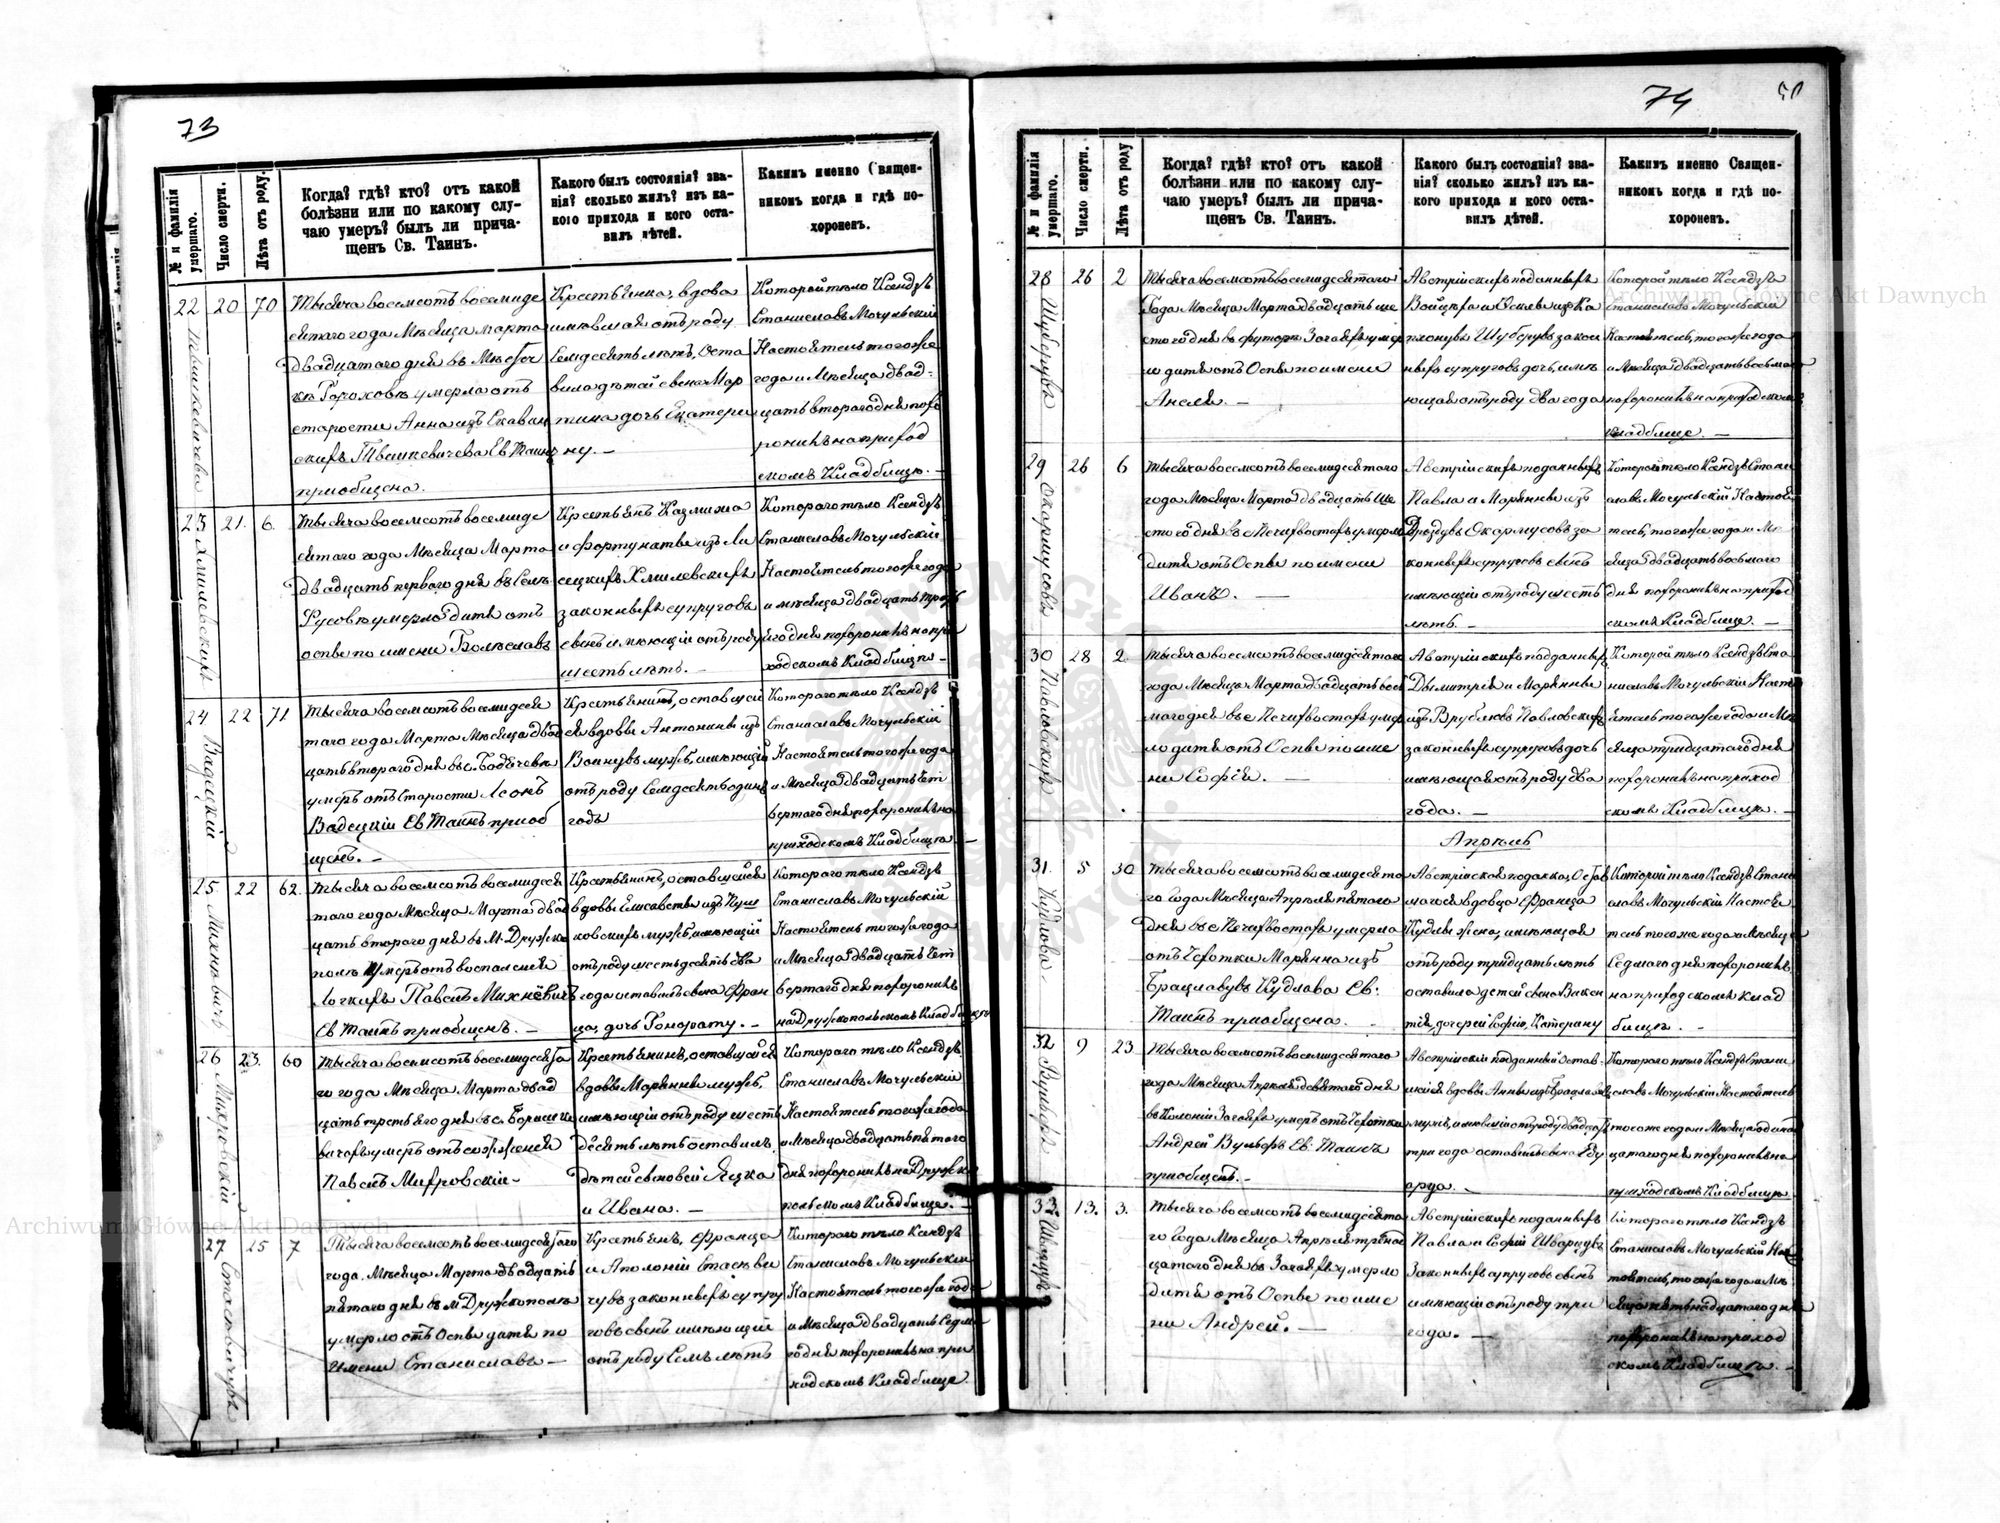 73
№ и фамилія умершаго.
Число смерти.
Лѣта отъ роду.
Когда? гдѣ? кто? отъ какой
болѣзни или по какому слу-
чаю умеръ? былъ ли прича-
щенъ Св. Таинъ.
Какого былъ состоянія? зва-
нія? сколько жилъ? изъ ка-
кого прихода и кого оста-
вилъ дѣтей.
Какимъ именно Священ-
никомъ когда и гдѣ по-
хороненъ.
22
20
70
Тысяча восемсотъ восемиде
сятаго года Мѣсяца марта
двадцатаго дня въ Мѣстеч
кѣ Гороховѣ умерла отъ
старости Анна изъ
Св Таинъ
приобщена.
Крестьянка, вдова
имѣвшая отъ роду
Семдесятъ лѣтъ, Оста
вила дѣтей сына Мар
тина дочь Екатери
ну. —
Которой тѣло Ксендзъ
Станиславъ Мочульскій
Настоятель тогоже
года и Мѣсяца двад-
цать втораго дня похо
ронилъ на приход
скомъ Кладбищѣ. —
23
Хмилевскихъ
21.
6.
Тысяча восемсотъ восемиде
сятаго года Мѣсяца Марта
двадцать перваго дня въ Селѣ
умерло дитя отъ
оспы по имени Болеславъ
Крестьянъ Казимира
и Фортунаты изъ Ли
сецкихъ Хмилевскихъ
законныхъ супруговъ
сынъ имѣющій отъ роду
шесть лѣтъ. —
Котораго тѣло Ксендзъ
Станиславъ Мочульскій
Настоятель тогоже года
и мѣсяца двадцать треть
яго дня похоронилъ на при
ходскомъ Кладбищѣ —
24
Вадецкій
22
71
Тысяча восемсотъ восемидеся
таго года Марта Мѣсяца двад
цать втораго дня въ с.
умеръ отъ Старости Леонъ
Вадецкій Св Таинъ приоб
щенъ. —
Крестьянинъ, оставшей
ся вдовы Антонины изъ
мужъ, имѣющій
отъ роду Семдесятъ одинъ
годъ
Котораго тѣло Ксендзъ
Станиславъ Мочульскій
Настоятель тогоже года
и Мѣсяца двадцать чет
вертаго дня похоронилъ на
приходскомъ Кладбищѣ —
25.
Михневичъ
22
62.
Тысяча восемсотъ восемидеся
таго года Мѣсяца Марта двад
цать втораго дня въ М. Друшко
полѣ умеръ отъ воспаленія
Легкихъ Павелъ Михневичъ
Св Таинъ приобщенъ. —
Крестьянинъ, оставшейся
вдовы Елисаветы изъ
ковскихъ мужъ, имѣющій
отъ роду шестьдесятъ два
года оставилъ сына Фран
ца, дочь Гонорату. —
Котораго тѣло Ксендзъ
Станиславъ Мочульскій
Настоятель тогоже года
и Мѣсяца двадцать чет
вертаго дня похоронилъ
на Друшкопольскомъ Кладбищѣ
26
23.
60
Тысяча восемсотъ восемидесята
го года Мѣсяца Марта двад
цать третьяго дня въ с.
умеръ отъ
Павелъ
Крестьянинъ, оставшейся
вдовы Марянны мужъ,
имѣющій отъ роду шесть
десятъ лѣтъ оставилъ
дѣтей сыновей Яцка
и Ивана. —
Котораго тѣло Ксендзъ
Станиславъ Мочульскій
Настоятель тогоже года
и Мѣсяца двадцать пятаго
дня похоронилъ на Друшко
польскомъ Кладбищѣ. —
27
25
7
Тысяча восемсотъ восемидесятаго
года Мѣсяца Марта двадцать
пятаго дня въ М Друшкополѣ
умерло отъ Оспы дитя по
имени Станиславъ —
Крестьянъ, Франца
и Аполоніи
законныхъ супру
говъ сынъ имѣющій
отъ роду Семъ лѣтъ
Котораго тѣло Ксендзъ
Станиславъ Мочульскій
Настоятель тогоже года
и Мѣсяца двадцать седм
го дня похоронилъ на при
ходскомъ Кладбищѣ
74
№ и фамилія умершаго.
Число смерти.
Лѣта отъ роду
Когда? гдѣ? кто? отъ какой
болѣзни или по какому слу-
чаю умеръ? былъ ли прича-
щенъ Св. Таинъ.
Какого былъ состоянія? зва-
нія? сколько жилъ? изъ ка-
кого прихода и кого оста-
вилъ дѣтей.
Какимъ именно Священ-
никомъ когда и гдѣ по-
хороненъ.
28
26
2
Тысяча восемсотъ восемидесятаго
Года Мѣсяца Марта двадцать ше
стого дня въ футорѣ умер
ло дитя отъ Оспы по имени
Анеля. —
Австрійскихъ поданныхъ
закон
ныхъ супруговъ дочь, имѣ
ющая отъ роду два года
Которой тѣло Ксендзъ
Станиславъ Мочульскій
Настоятель, тогоже года
и Мѣсяца двадцать восьмаго
похоронилъ на приходском
кладбище. —
29
26
6
Тысяча восемсотъ восемидесятаго
года Мѣсяца Марта двадцать ше
стого дня въ с Печихвостахъ умерло
дитя отъ Оспы по имени
Иванъ. —
Австрійскихъ поданныхъ
Павла и Марянны изъ
за
конныхъ супруговъ сынъ
имѣющій отъ роду шесть
лѣтъ. —
Которой тѣло Ксендзъ Стани
славъ Мочульскій Настоя
тель, тогоже года и Мѣ
сяца двадцать восьмаго
дня похоронилъ на приход
скомъ Кладбище. —
30
Павловскихъ
28
2
Тысяча восемсотъ восемидесятаго
года Мѣсяца Марта двадцать вось
маго дня въ с Печихвостахъ умер
ло дитя отъ Оспы по име
ни Софія. —
Австрійскихъ подданныхъ
Дымитрія и Марянны
изъ Врублевъ Павловскихъ
законныхъ супруговъ дочь
имѣющая отъ роду два
года. —
Которой тѣло Ксендзъ Ста
ниславъ Мочульскій Насто
ятель тогоже года и Мѣ
сяца тридцатаго дня
похоронилъ на приход
скомъ Кладбищѣ. —
Апрѣль
31.
Кудлова
5
30
Тысяча восемсотъ восемидесята
го Года Мѣсяца Апрѣля пятаго
дня въ с Печихвостахъ умерла
отъ Чехотки Марянна изъ
Брацлавувъ Кудлова Св:
Таинъ приобщена.
Австрійская поданка, Остав
шагося вдовца Франца
Кудлы жена, имѣющая
отъ роду тридцать лѣтъ
оставила детей сына Викен
тія, дочерей Софію, Катерину
Которой тѣло Ксендзъ Стани
славъ Мочульскій Настоя
тель тогоже года и Мѣсяца
Седмаго дня похоронилъ
на приходскомъ клад
бищѣ. —
32
Вульфъ
9
23
Тысяча восемсотъ восемидесятаго
года Мѣсяца Апрѣля девятаго дня
въ Колоніи умеръ отъ Чехотки
Андрей Вульфъ Св: Таинъ
приобщенъ. —
Австрійскій подданный остав-
шейся вдовы Анны изъ
мужъ, имѣвшій отъ роду двадцать
три года оставилъ сына Эду
арда. —
Котораго тѣло Ксендзъ Стани
славъ Мочульскій Настоятель
тогоже года и Мѣсяца одинад
цатаго дня похоронилъ на
приходскомъ Кладбищѣ
33.
13.
3.
Тысяча восемсотъ восемидесята
го Года Мѣсяца Апрѣля тринад
цатаго дня въ умерло
дитя отъ Оспы по име
ни Андрей. —
Австрійскихъ поданныхъ
Павла и Софіи Шварцувъ
Законныхъ супруговъ сынъ
имѣющій отъ роду три
года. —
Котораго тѣло Ксендзъ
Станиславъ Мочульскій Нас
тоятель, тогоже года и Мѣ
сяца пятнадцатаго дня
похоронилъ на приход
скомъ Кладбищѣ. —
Archiwum Główne Akt Dawnych
Archiwum Główne Akt Dawnych